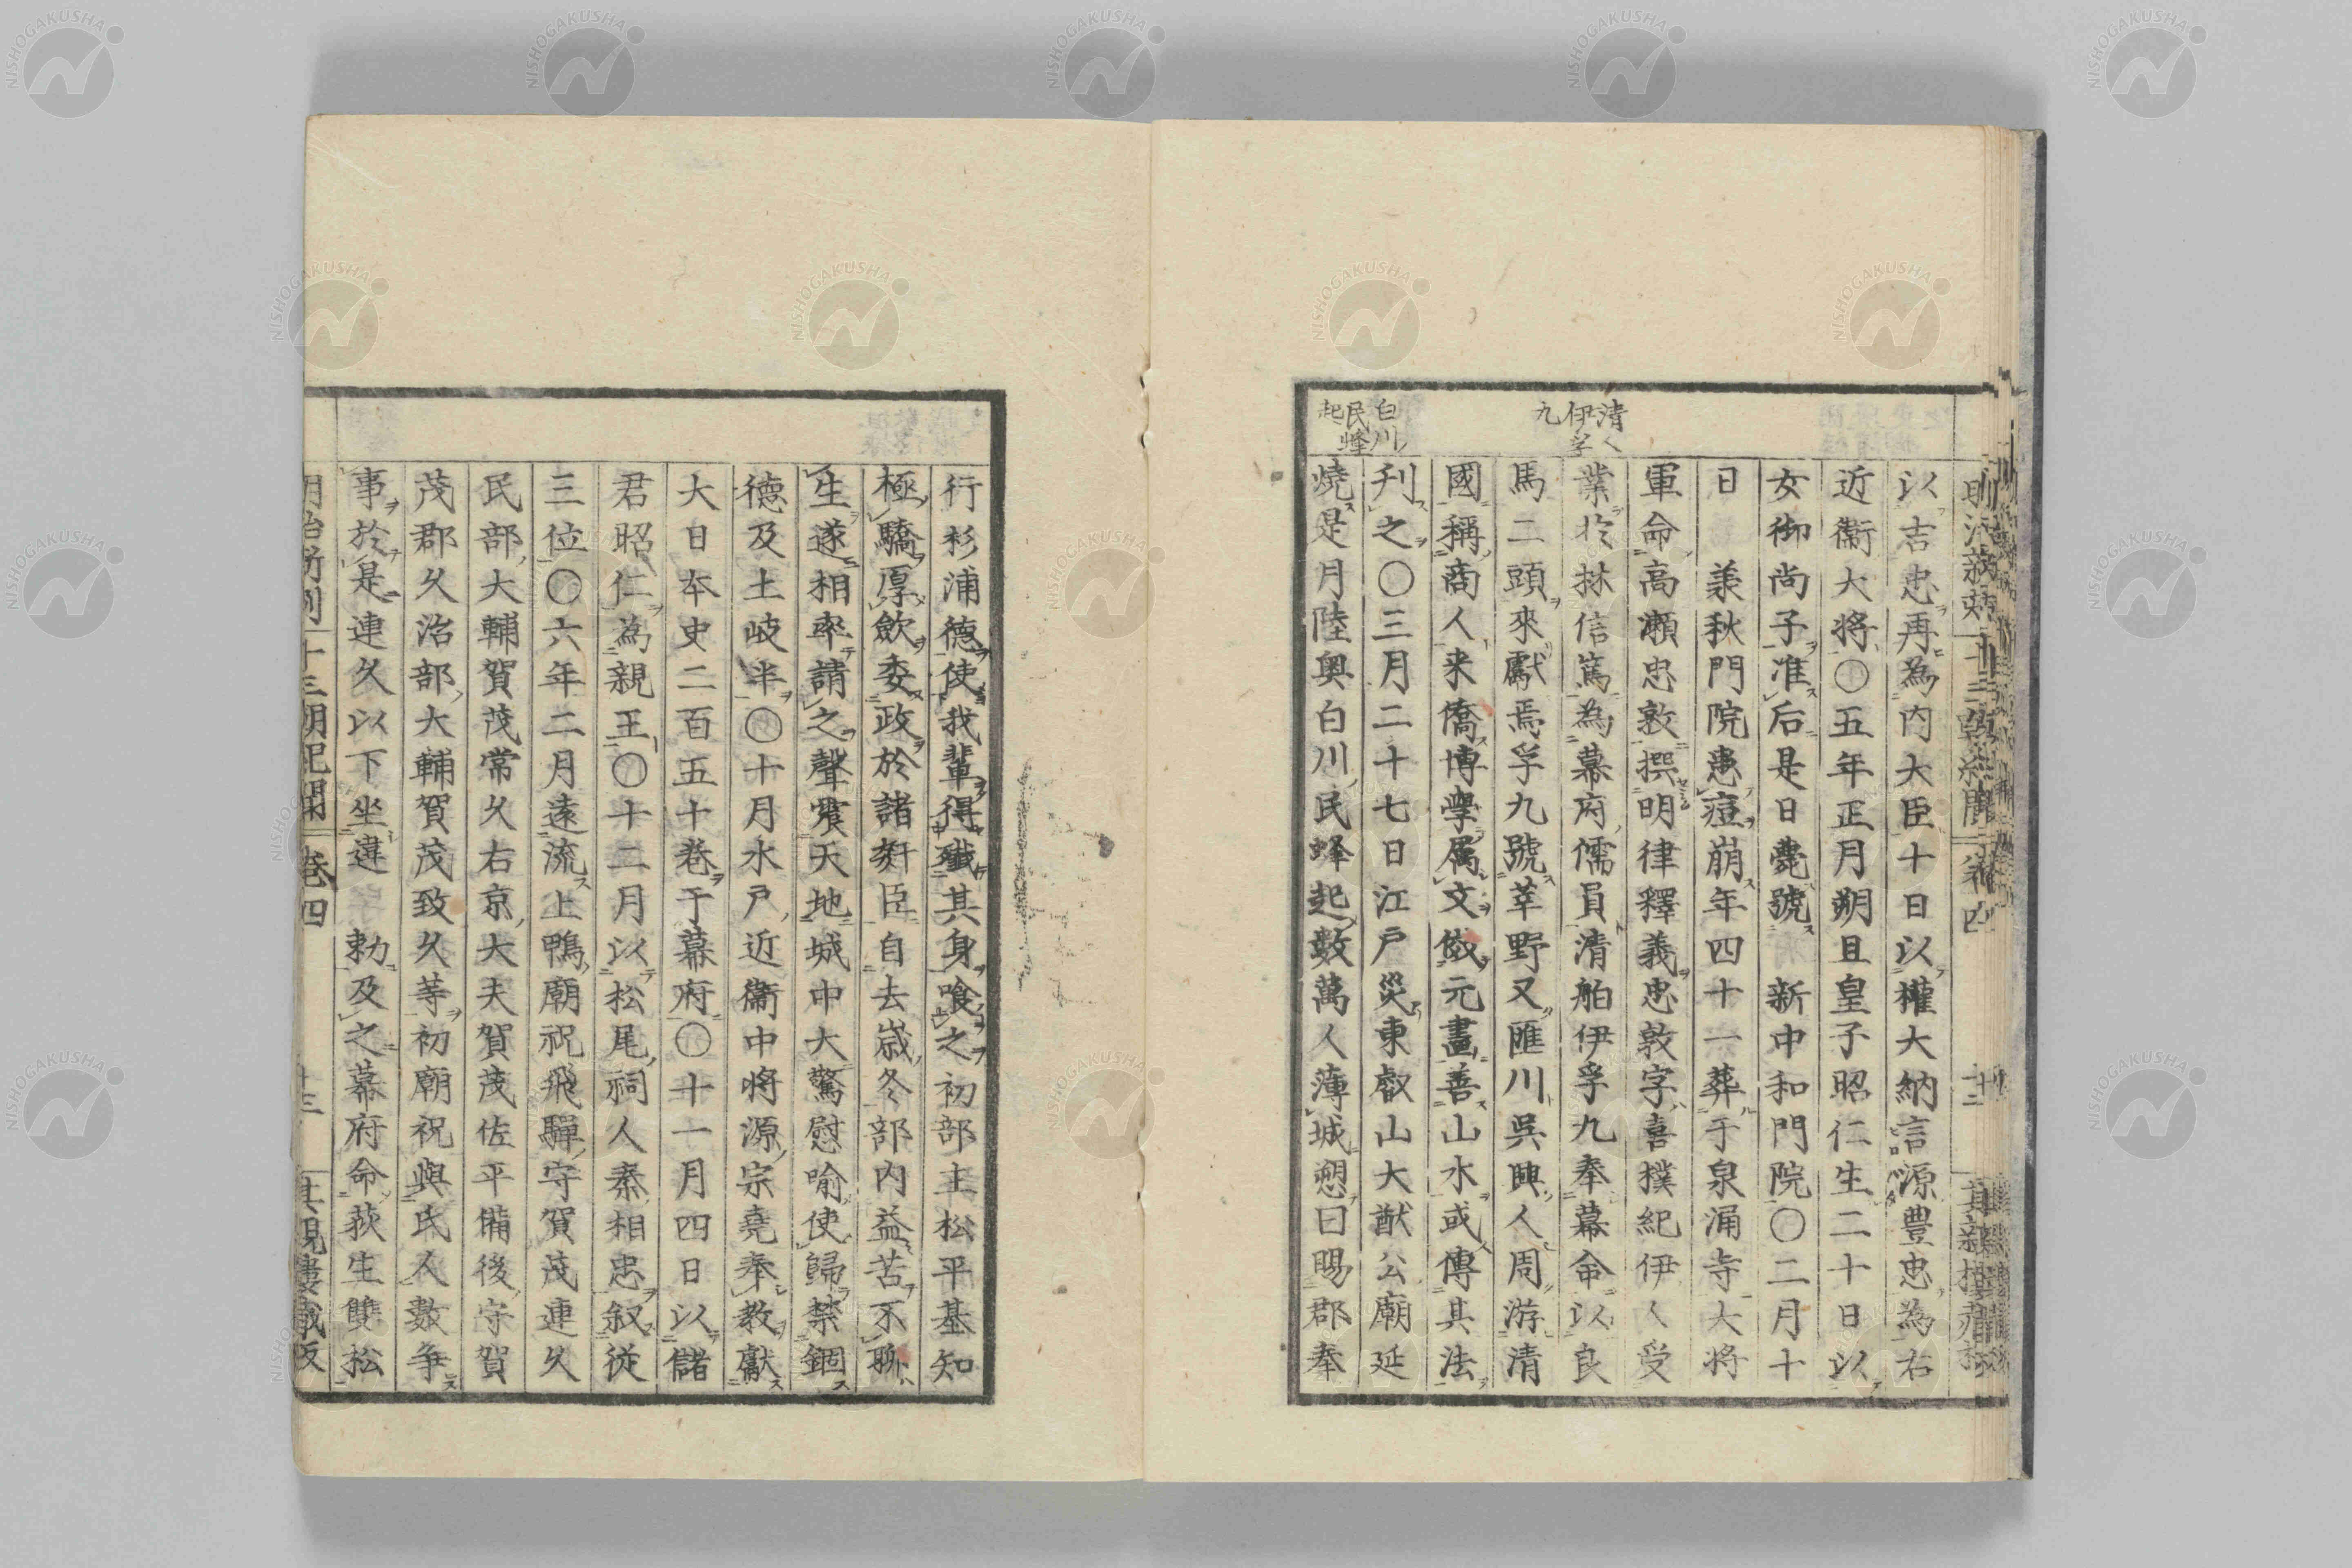 清人
伊孚
九
白川
民蜂
起
以吉忠再為内大臣十日以權大納言源豊忠為右
近衞大將〇五年正月朔旦皇子昭仁生二十日以
女御尚子准后是日薨號新中和門院〇二月十
日羕秋門院患痘崩年四十一葬于泉涌寺大将
軍命高瀬忠敦撰明律釋義忠敦字喜撲紀伊人受
業於林信篤為幕府儒員清舶伊孚九奉幕命以良
馬二頭來獻焉孚九號莘野又匯川呉興人周游清
國稱商人来僑博學属文倣元畫善山水或傳其法
刋之〇三月二十七日江戸災東叡山大猷公廟延
燒是月陸奥白川民蜂起數萬人薄城愬曰賜郡奉
行杉浦德使我輩得殱其身喰之初部主松平基知
極驕厚歛委政於諸奸臣自去歳冬部内益苦不聊
生遂相率請之聲震天地城中大驚慰喻使歸禁錮
德及土岐半〇十月水戸近衞中将源宗堯奉教獻
大日本史二百五十巻于幕府〇十一月四日以儲
君昭仁為親王〇十二月以松尾祠人秦相忠叙従
三位〇六年二月遠流上鴨廟祝飛驒守賀茂連久
民部大輔賀茂常久右京大夫賀茂佐平備後守賀
茂郡久治部大輔賀茂致久等初廟祝與氏人數争
事於是連久以下坐違勅及之幕府命荻生雙松
十三朝紀聞 巻四 十三